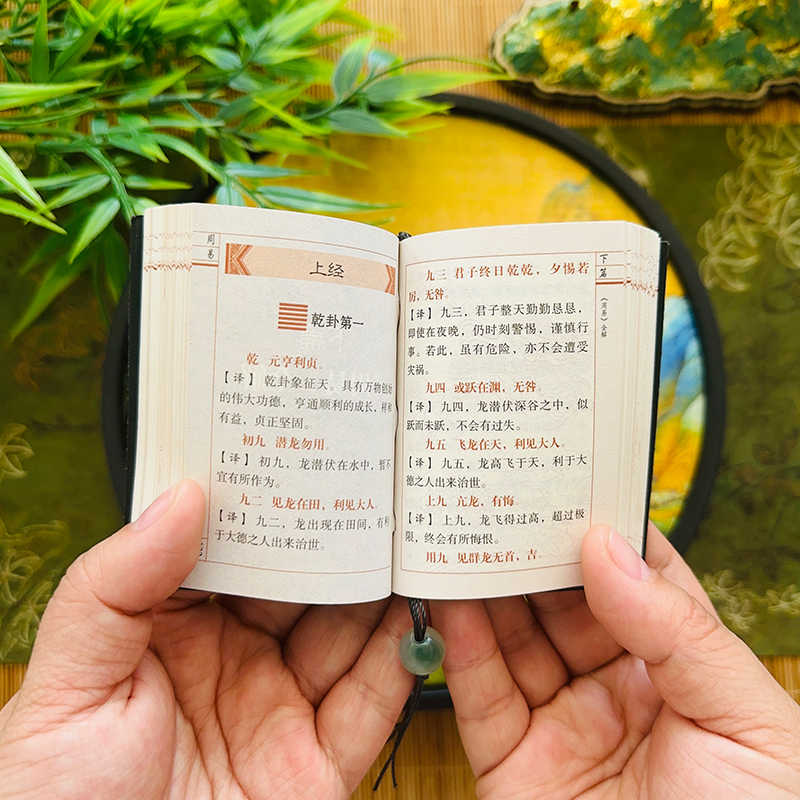 周易
上经
乾卦第一
乾 元亨利贞。
【译】乾卦象征天。具有万物创始
的伟大功德，亨通顺利的成长，祥和
有益，贞正坚固。
初九 潜龙勿用。
【译】初九，龙潜伏在水中，暂不
宜有所作为。
九二 见龙在田，利见大人。
【译】九二，龙出现在田间，有利
于大德之人出来治世。
下篇
《周易》全解
九三 君子终日乾乾，夕惕若
厉，无咎。
【译】九三，君子整天勤勤恳恳，
即使在夜晚，仍时刻警惕，谨慎行
事。若此，虽有危险，亦不会遭受
灾祸。
九四 或跃在渊，无咎。
【译】九四，龙潜伏深谷之中，似
跃而未跃，不会有过失。
九五 飞龙在天，利见大人。
【译】九五，龙高飞于天，利于大
德之人出来治世。
上九 亢龙，有悔。
【译】上九，龙飞得过高，超过极
限，终会有所悔恨。
用九 见群龙无首，吉。